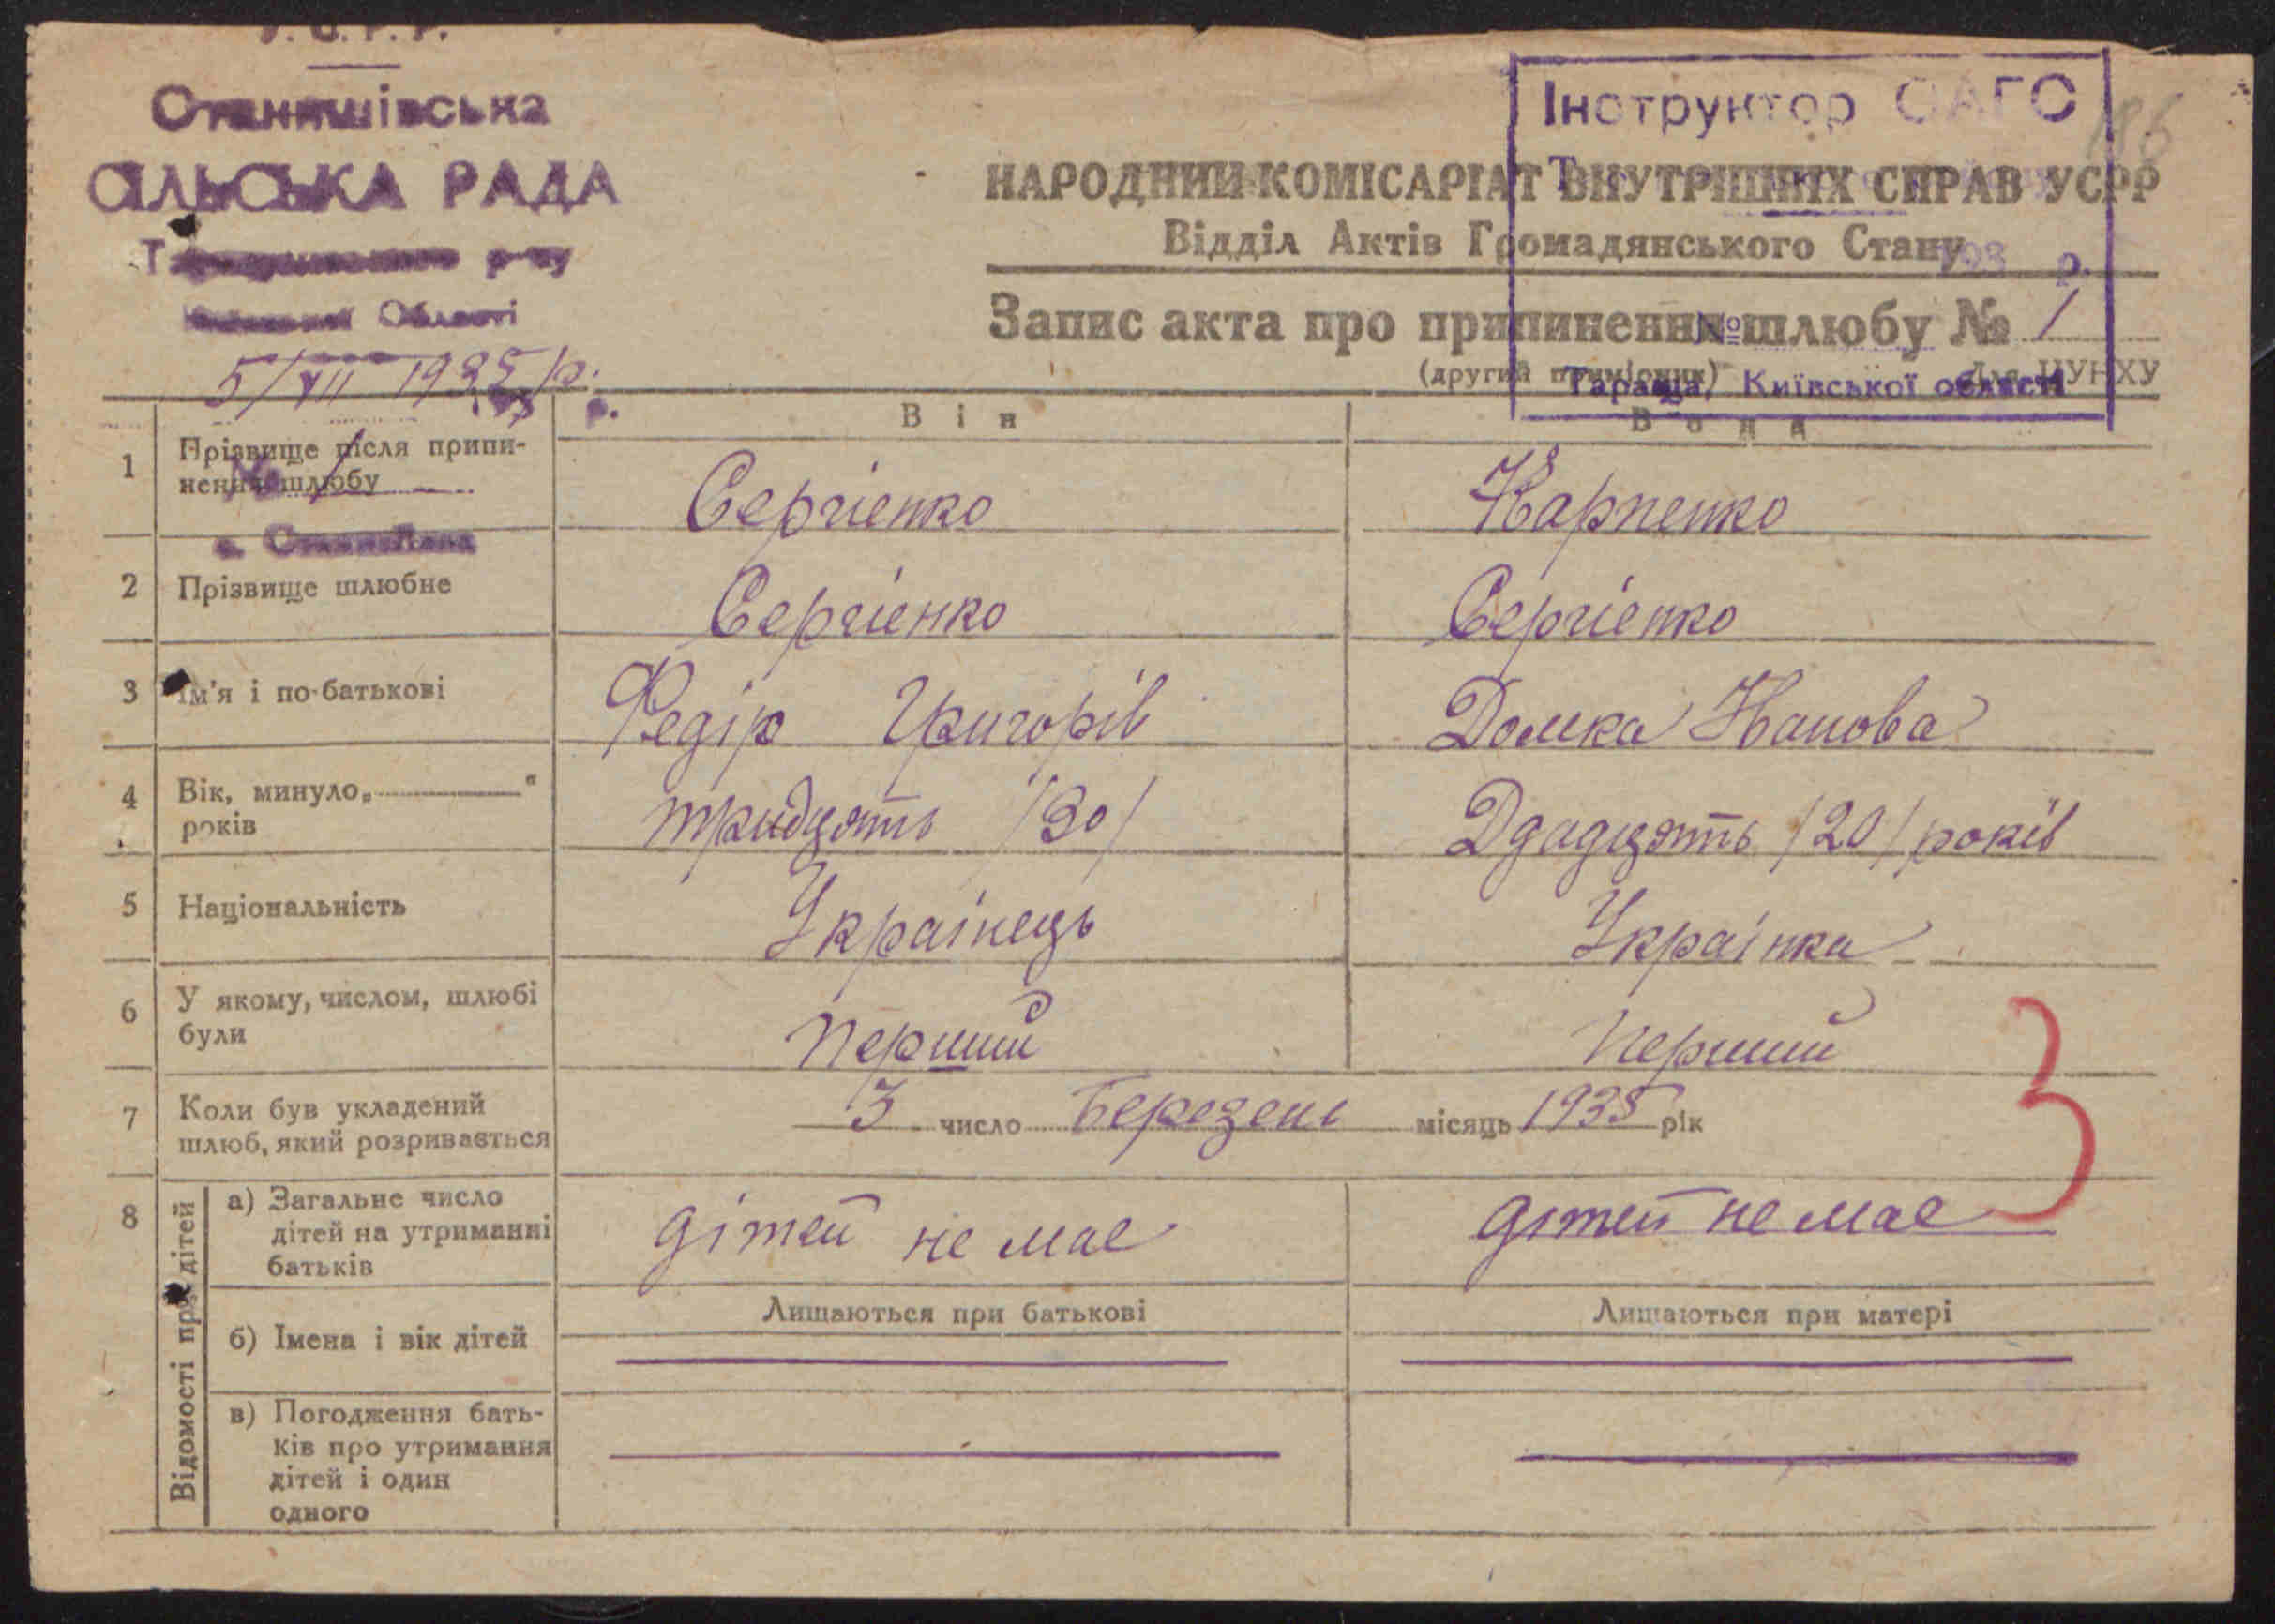 У. С. Р. Р.
Станишівська
СІЛЬСЬКА РАДА
р-ну
Області
5/VII 1935 р.
р.
№ 1
Інструктор ОАГС
186
НАРОДНИЙ КОМІСАРІАТ ВНУТРІШНІХ СПРАВ УСРР
Відділ Актів Громадянського Стану
193 р.
Запис акта про припинення шлюбу № 1
№
(другий примірник) Для НУНХУ
Тараща, Київської області
Він Вона
1 Прізвище після припи-
нення шлюбу
Сергієнко Карпенко
2 Прізвище шлюбне Сергієнко Сергієнко
3 Ім'я і по-батькові Федір Григорів Домка
4 Вік, минуло „ “
років
тридцять /30/ Двадцять /20/ років
5 Національність Українець Українка
6 У якому, числом, шлюбі
були
перший перший
7 Коли був укладений
шлюб, який розривається
3 число Березень місяць 1935 рік
3
8 Відомості про дітей
а) Загальне число
дітей на утриманні
батьків
дітей не має дітей не має
Лишаються при батькові Лишаються при матері
б) Імена і вік дітей
в) Погодження бать-
ків про утримання
дітей і один
одного